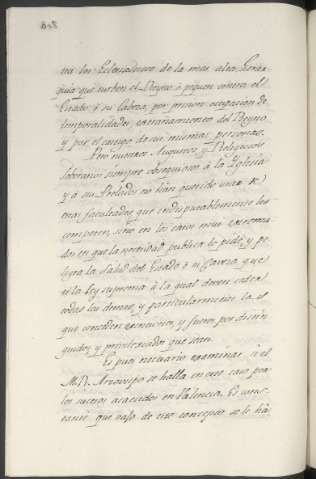 ra los Eclesiasticos de la mas alta Gerar
quia que turben el Reyno ó pequen contra el
Estado ó su Cabeza, por privacion ocupacion de
temporalidades, extrañamiento del Reyno
y por el castigo de sus mismas personas.
Pero nuestros Augustos y Religiosos
Soberanos siempre obsequiosos à la Iglesia
y a sus Prelados no han querido usar de
estas facultades que indisputablemente les
competen, sino en los casos mas extrema
dos en que la necesidad publica lo pide, y pe
ligra la salud del Estado ó su Corona que
es la Ley suprema à la qual deven ceder
todas las demas, y particularmente las
que conceden exenciones, y fueros por distin
guidos, y privilegiados que sean.
Es pues necesario examinar si el
M. R. Arzovispo se halla en este caso por
los sucesos acaecidos en Valencia. Es cons
tante que vajo de este concepto se le há